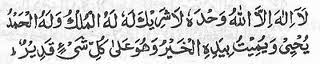 لَا اِلٰهَ اِلَّا اللّٰهُ وَحْدَهٗ لَا شَرِيْكَ لَهٗ لَهُ الْمُلْكُ وَلَهُ الْحَمْدُ
يُحْيِىْ وَيُمِيْتُ بِيَدِهِ الْخَيْرُ وَهُوَ عَلٰى كُلِّ شَىْءٍ قَدِيْرٌ